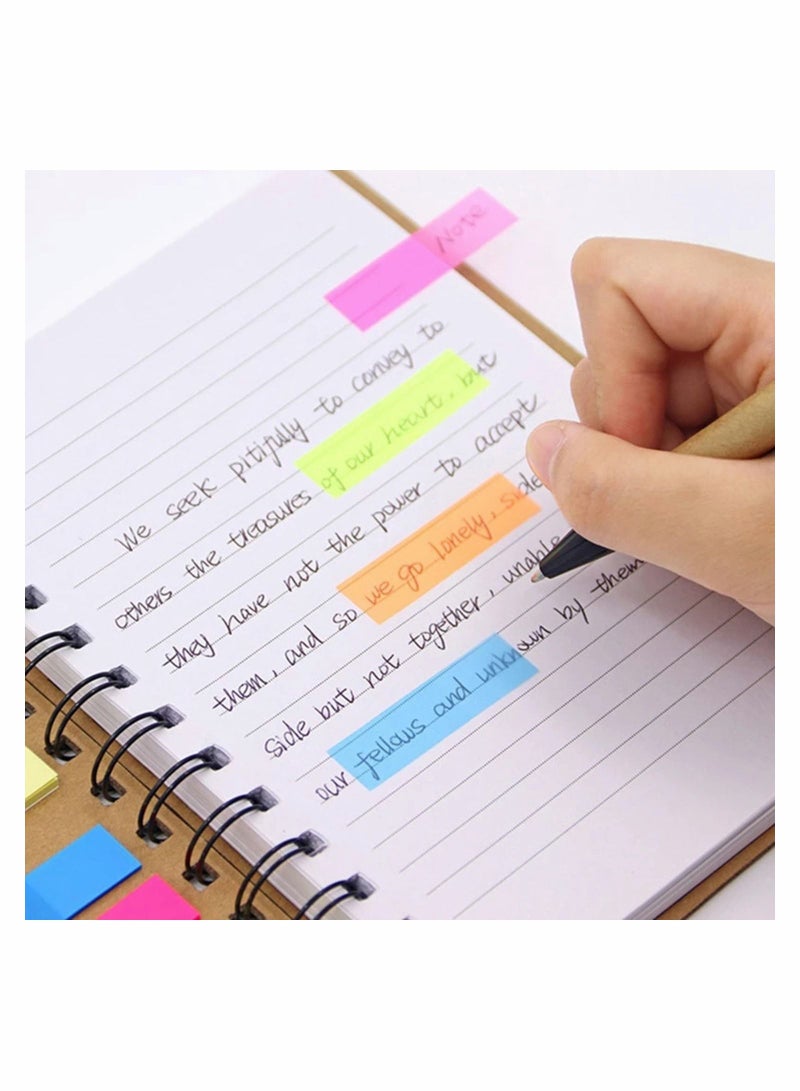 Note
We seek pitifully to convey to
others the treasures of our heart, but
they have not the power to accept
them, and so we go lonely, side
side but not together, unable
our fellows and unknown by them